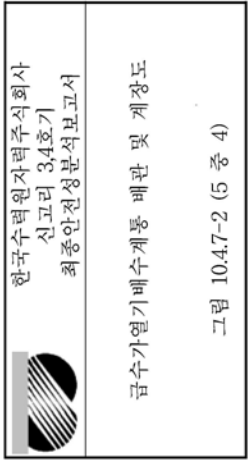 한국수력원자력주식회사
신고리 3,4호기
최종안전성분석보고서
급수가열기배수계통 배관 및 계장도
그림 10.4.7-2 (5 중 4)